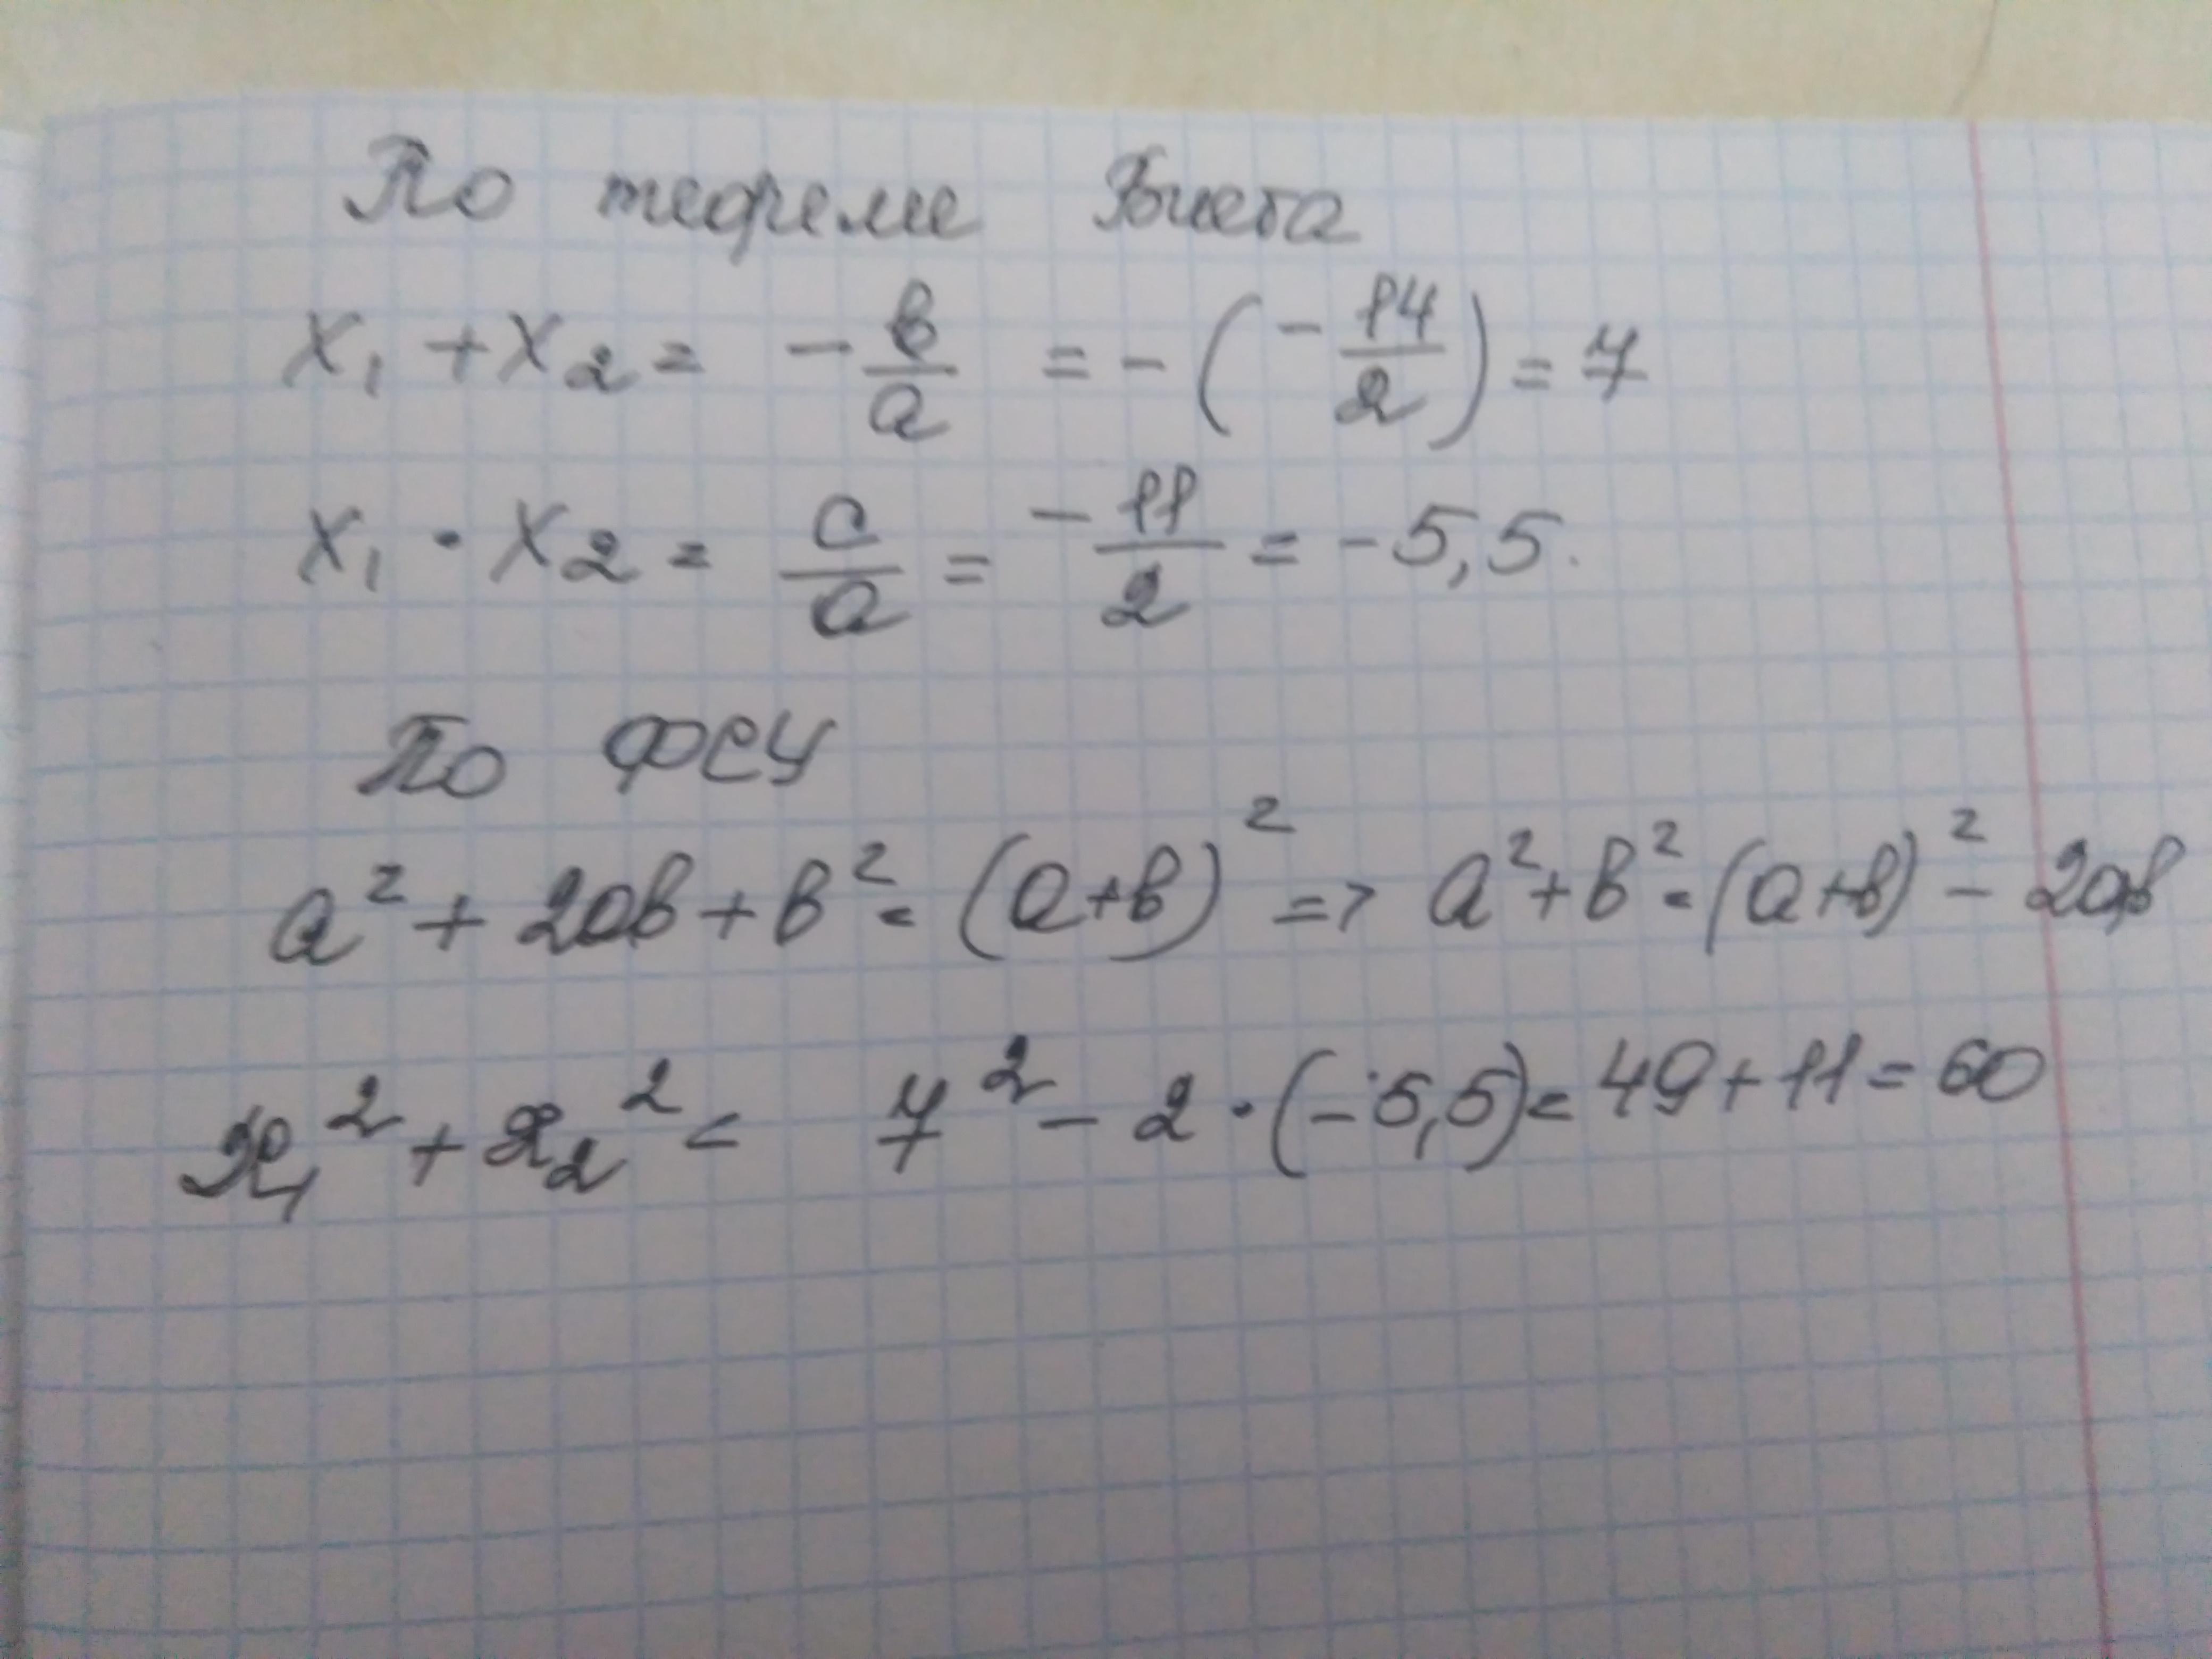 По теореме Виета
x₁ + x₂ = -b/a = -(-14/2) = 7
x₁ · x₂ = c/a = -11/2 = -5,5.
По ФСУ
a² + 2ab + b² = (a+b)² => a² + b² = (a+b)² - 2ab
x₁² + x₂² = 7² - 2 · (-5,5) = 49 + 11 = 60